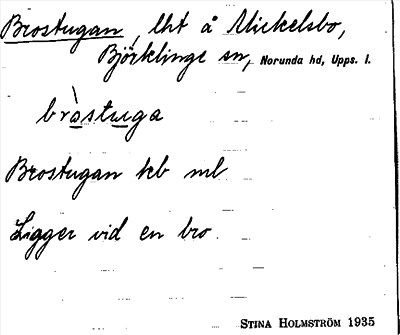 Brostugan, lht å Mickelsbo,
Björklinge sn, Norunda hd, Upps. l.
bròstuga
Brostugan hb ml
Ligger vid en bro.
STINA HOLMSTRÖM 1935